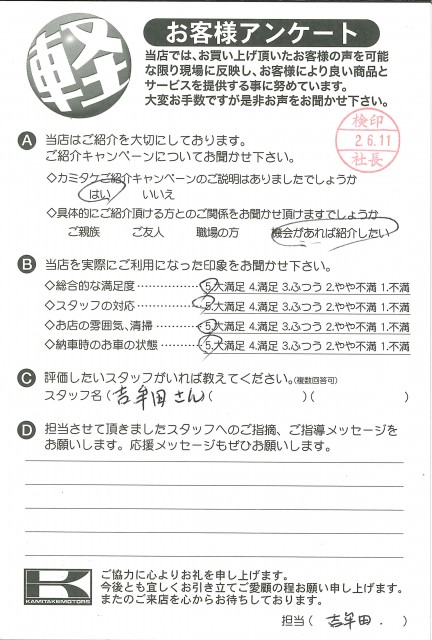 軽
お客様アンケート
当店では、お買い上げ頂いたお客様の声を可能
な限り現場に反映し、お客様により良い商品と
サービスを提供する事に努めています。
大変お手数ですが是非お声をお聞かせ下さい。
検印
26.11
社長
A 当店はご紹介を大切にしております。
ご紹介キャンペーンについてお聞かせ下さい。
◇カミタケご紹介キャンペーンのご説明はありましたでしょうか
はい いいえ
◇具体的にご紹介頂ける方とのご関係をお聞かせ頂けますでしょうか
ご親族 ご友人 職場の方 機会があれば紹介したい
B 当店を実際にご利用になった印象をお聞かせ下さい。
◇総合的な満足度……………5.大満足 4.満足 3.ふつう 2.やや不満 1.不満
◇スタッフの対応……………5.大満足 4.満足 3.ふつう 2.やや不満 1.不満
◇お店の雰囲気、清掃………5.大満足 4.満足 3.ふつう 2.やや不満 1.不満
◇納車時のお車の状態………5.大満足 4.満足 3.ふつう 2.やや不満 1.不満
C 評価したいスタッフがいれば教えてください。(複数回答可)
スタッフ名(吉牟田さん)( )( )
D 担当させて頂きましたスタッフへのご指摘、ご指導メッセージを
お願いします。応援メッセージもぜひお願いします。
KAMITAKEMOTORS
ご協力に心よりお礼を申し上げます。
今後とも宜しくお引き立てご愛顧の程お願い申し上げます。
またのご来店を心からお待ちしております。
担当(吉牟田.)